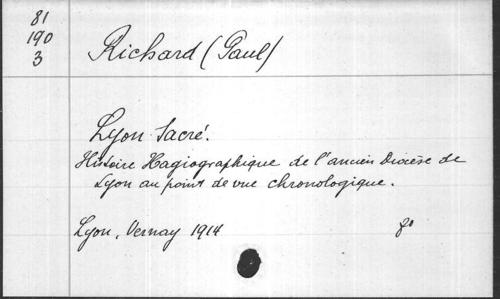 81
190
3
Richard (Paul)
Lyon Sacré.
Histoire Hagiographique de l'ancien Diocèse de
Lyon au point de vue chronologique.
Lyon, Vernay 1914